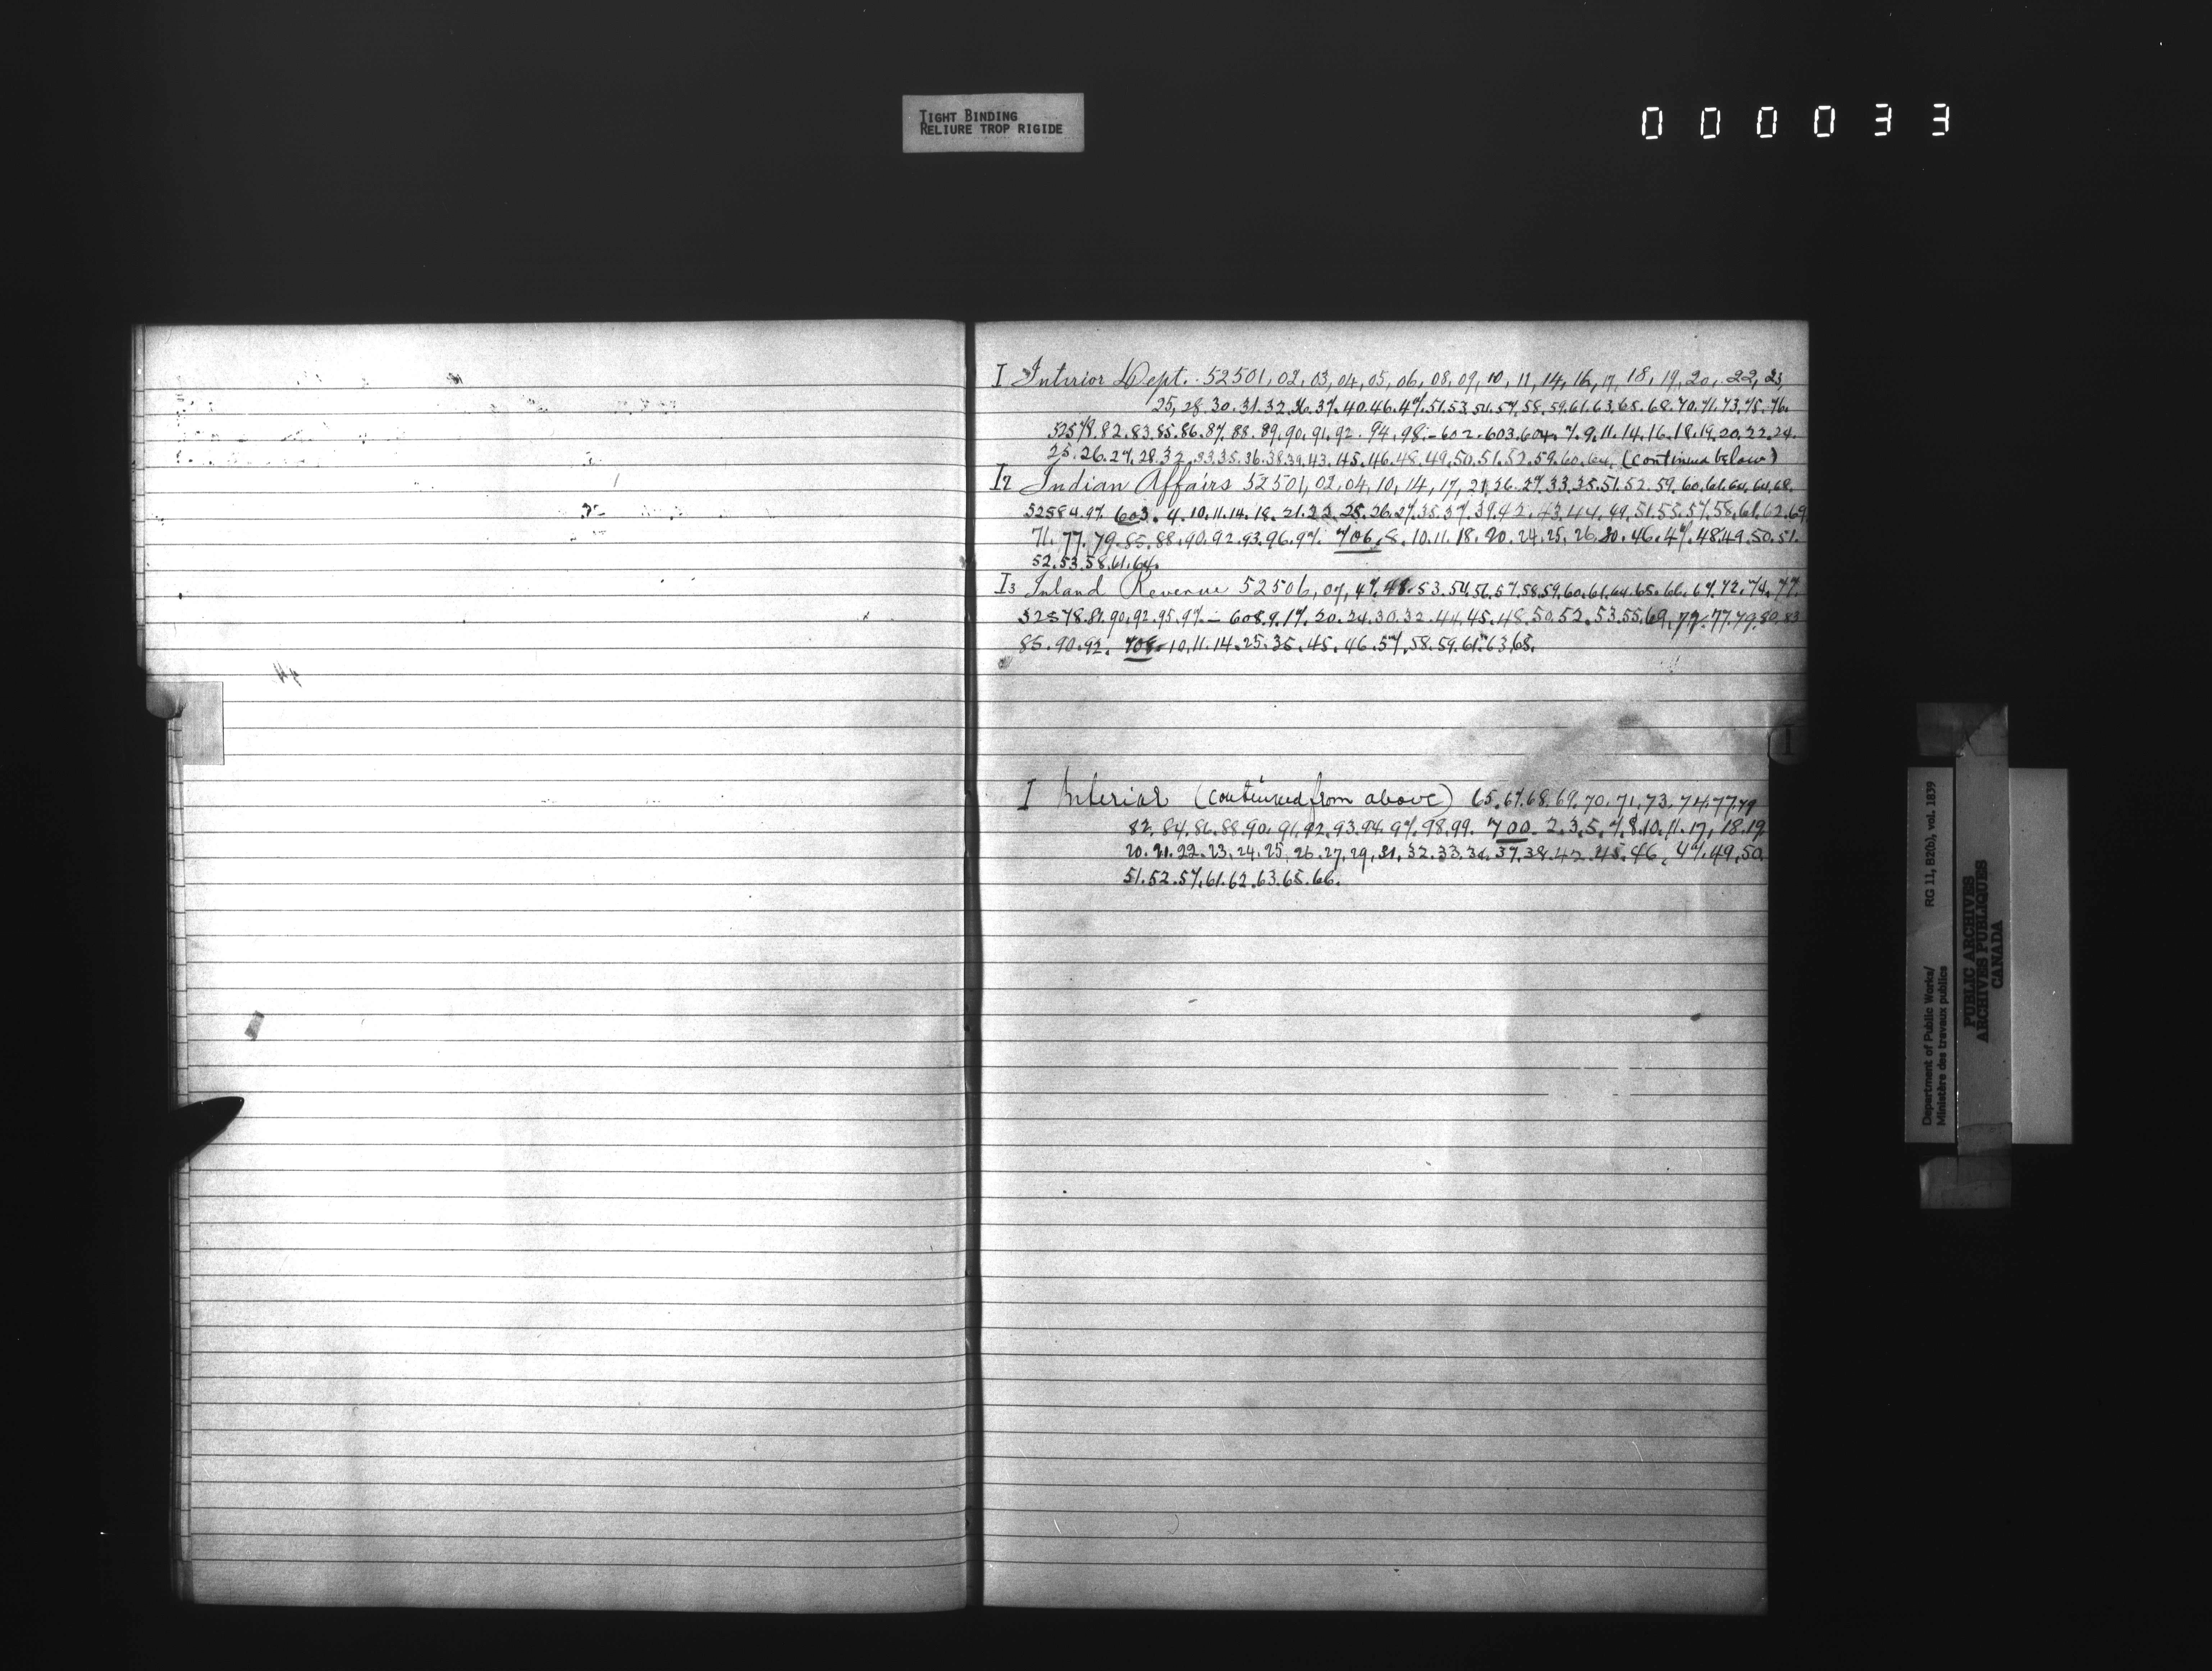 TIGHT BINDING
RELIURE TROP RIGIDE
000033
I Interior Dept. 52501, 02, 03, 04, 05, 06, 08, 09, 10, 11, 14, 16, 17, 18, 19, 20, 22, 23,
25, 28. 30. 31. 32. 36. 37. 40. 46. 47. 51. 53. 54. 57. 58. 59. 61. 63. 65. 68. 70. 71. 73. 75. 76.
52578. 82. 83. 85. 86. 87. 88. 89. 90. 91. 92. 94. 98. - 602. 603. 604. 7. 9. 11. 14. 16. 18. 19. 20. 22. 24.
25. 26. 27. 28. 32. 33. 35. 36. 38. 39. 43. 45. 46. 48. 49. 50. 51. 52. 59. 60. 64. (continued below)
I2 Indian Affairs 52501, 02, 04, 10, 14, 17, 21. 26. 27. 33. 35. 51. 52. 59. 60. 61. 64. 68.
52584. 97. 603. 4. 10. 11. 14. 18. 21. 22. 25. 26. 27. 35. 37. 39. 42. 43. 44. 49. 51. 55. 57. 58. 61. 62. 69.
71. 77. 79. 85. 88. 90. 92. 93. 96. 97. 706. 8. 10. 11. 18. 20. 24. 25. 26. 30. 46. 47. 48. 49. 50. 51.
52. 53. 58. 61. 64.
I3 Inland Revenue 52506, 07, 47. 48. 53. 54. 56. 57. 58. 59. 60. 61. 64. 65. 66. 67. 72. 74. 77.
52578. 81. 90. 92. 95. 97. - 608. 9. 17. 20. 24. 30. 32. 44. 45. 48. 50. 52. 53. 55. 69. 72. 77. 79. 80. 83
85. 90. 92. 708. 10. 11. 14. 25. 35. 45. 46. 57. 58. 59. 61. 63. 65.
I
I Interior (continued from above) 65. 67. 68. 69. 70. 71. 73. 74. 77. 79
82. 84. 86. 88. 90. 91. 92. 93. 94. 97. 98. 99. 700. 2. 3. 5. 7. 8. 10. 11. 17. 18. 19.
20. 21. 22. 23. 24. 25. 26. 27. 29. 31. 32. 33. 34. 37. 38. 42. 45. 46. 47. 49. 50.
51. 52. 57. 61. 62. 63. 65. 66.
Department of Public Works/ RG 11, B2(b), vol. 1839
Ministère des travaux publics
PUBLIC ARCHIVES
ARCHIVES PUBLIQUES
CANADA